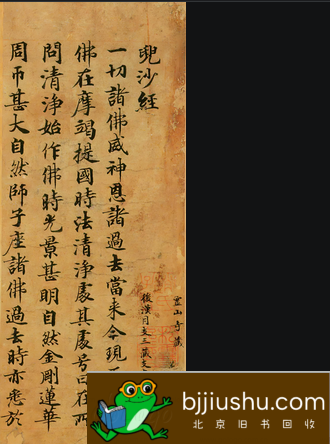 靈山寺藏
兜沙經
後漢月支三藏支
一切諸佛威神恩諸過去當来今現
佛在摩竭提國時法清淨處其處号曰在所
問清淨始作佛時光景甚明自然金剛蓮華
周帀甚大自然師子座諸佛過去時亦悉於
bjjiushu.com
北京旧书回收